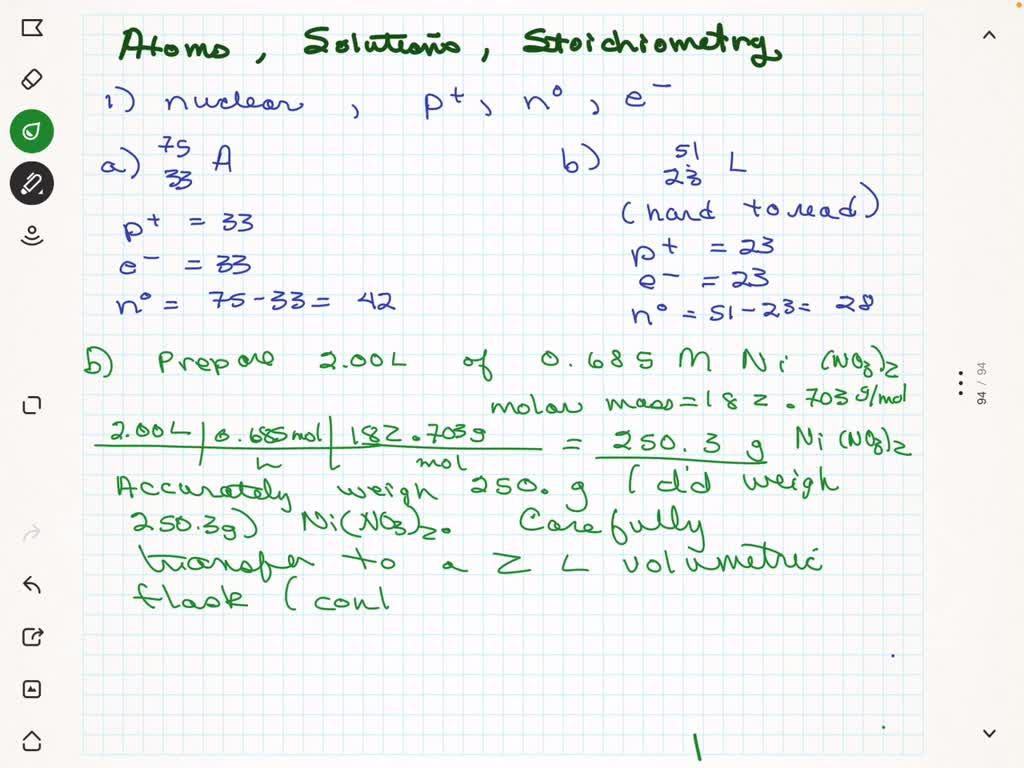 Atoms, Solutions, Stoichiometry
1) nuclear, p⁺, n⁰, e⁻
a) ⁷⁵₃₃ A
b) ⁵¹₂₃ L
(hard to read)
p⁺ = 33
e⁻ = 33
n⁰ = 75-33 = 42
p⁺ = 23
e⁻ = 23
n⁰ = 51-23 = 28
b) Prepare 2.00L of 0.685 M Ni(NO₃)₂
molar mass = 182.703 g/mol
2.00L | 0.685mol | 182.703g = 250.3 g Ni(NO₃)₂
L | mol
Accurately weigh 250. g (I'd weigh
250.3g) Ni(NO₃)₂. Carefully
transfer to a 2 L volumetric
flask (conl
94 / 94